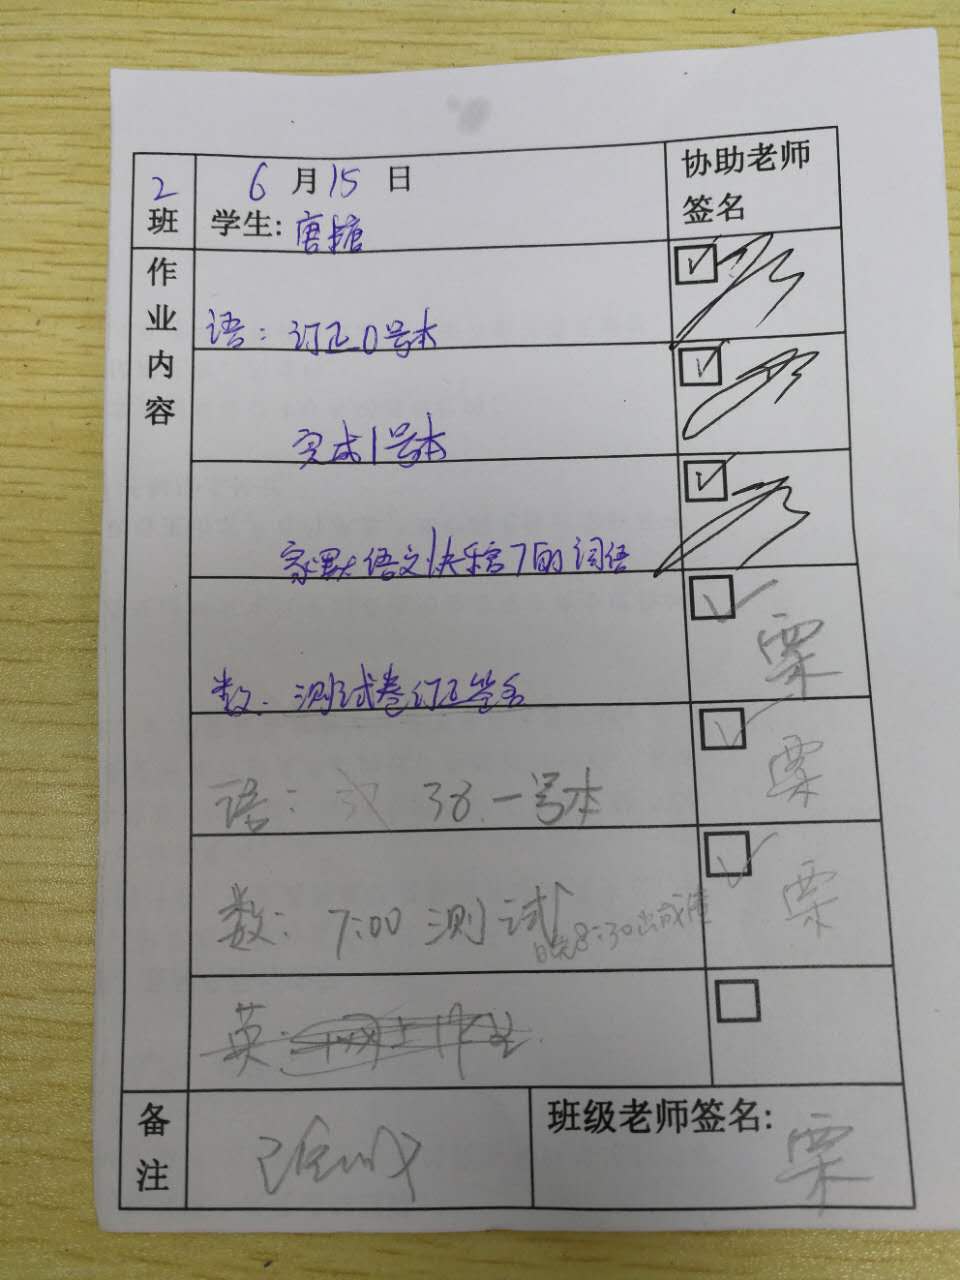 2班
6月15日
学生: 唐糖
协助老师
签名
作业内容
语: 订正0号本
完成1号本
家默语文快乐宫7的词语
数: 测试卷订正签名
栗
语: 38 一号本
栗
数: 7:00 测试
晚8:30出成绩
栗
英: 网上作业
备注
已完成
班级老师签名:
栗